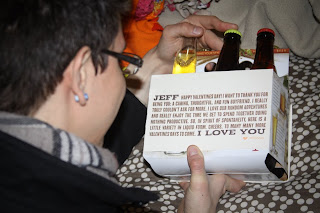 JEFF HAPPY VALENTINES DAY! I WANT TO THANK YOU FOR
BEING YOU: A CARING, THOUGHTFUL, AND FUN BOYFRIEND. I REALLY
COULDN'T ASK FOR MORE. I LOVE OUR RANDOM ADVENTURES
AND REALLY ENJOY THE TIME WE GET TO SPEND TOGETHER DOING
NOTHING PRODUCTIVE. SO, IN SPIRIT OF SPONTANEITY, HERE IS A
LITTLE VARIETY IN LIQUID FORM. CHEERS, TO MANY MANY MORE
VALENTINES DAYS TO COME. I LOVE YOU